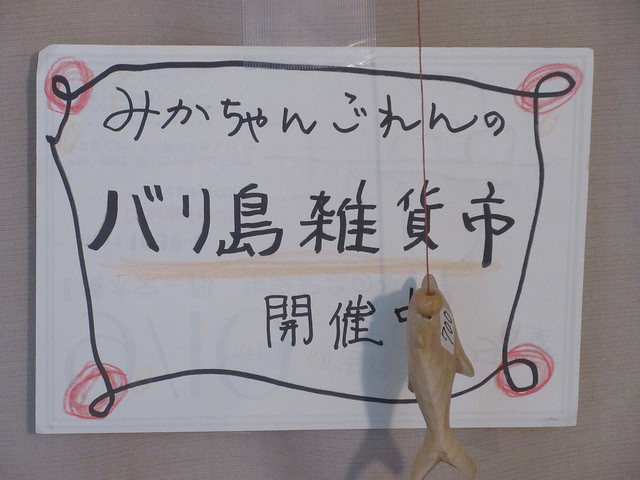 みかちゃんごれんの
バリ島雑貨市
開催中
700